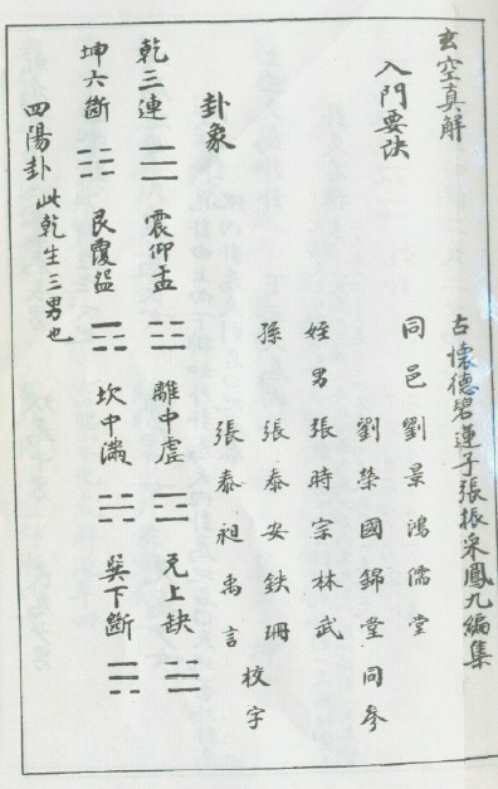 玄空真解
古懷德碧蓮子張振采鳳九編集
入門要訣
同邑劉景鴻儒堂
劉榮國錦堂同參
姪男張時宗林武
孫張泰安鉄珊
張泰昶禹言
校字
卦象
乾三連 ☰ 震仰盂 ☳ 離中虛 ☲ 兌上缺 ☱
坤六斷 ☷ 艮覆盌 ☶ 坎中滿 ☵ 巽下斷 ☴
四陽卦 此乾生三男也